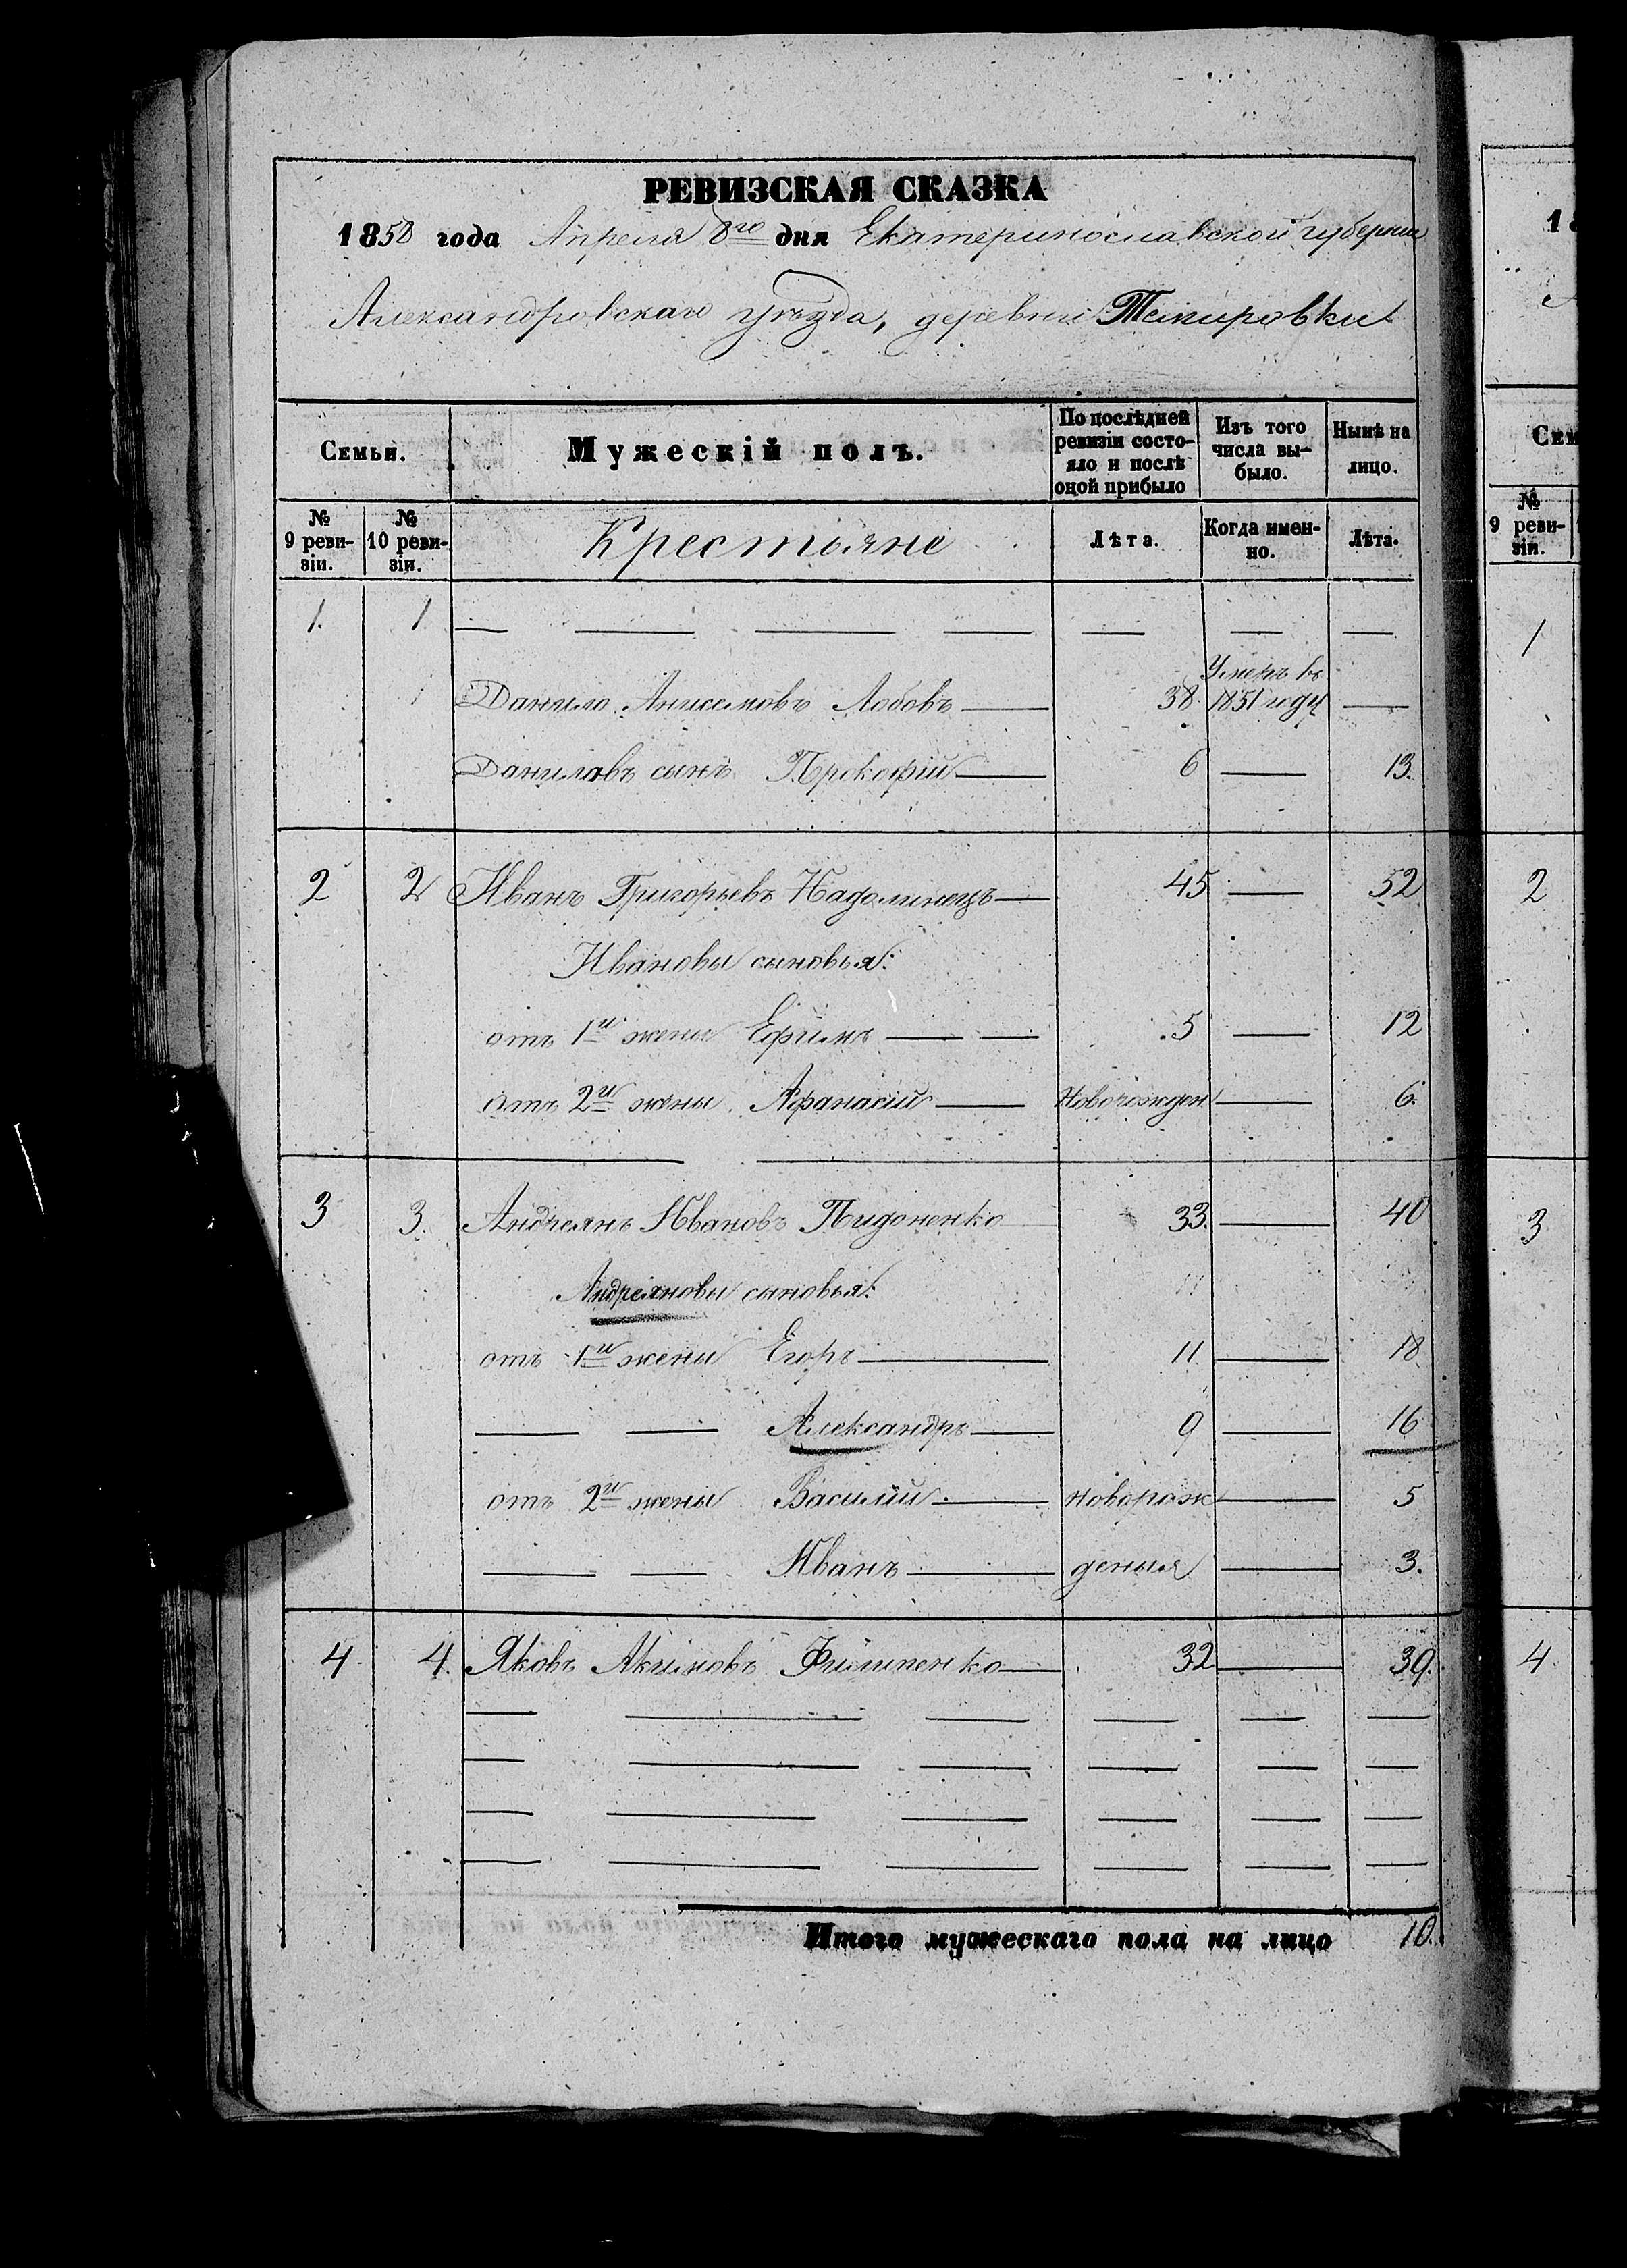 РЕВИЗСКАЯ СКАЗКА
1858 года Апреля 8го дня Екатеринославской губернии
Александровскаго уѣзда, деревни Темировки
Семьи.
Мужескій полъ.
По послѣдней ревизіи состо-
яло и послѣ
оной прибыло
Изъ того
числа вы-
было.
Нынѣ на
лицо.
№ 9 реви-
зіи.
№ 10 реви-
зіи.
Крестьяне
Лѣта.
Когда имен-
но.
Лѣта.
1. 1
Умеръ въ
Данило Анисимовъ Лобовъ 38. 1851 году
Даниловъ сынъ Прокофій 6 13.
2 2 Иванъ Григорьевъ Надолинецъ 45 52
Ивановы сыновья:
отъ 1й жены Ефимъ 5 12
отъ 2й жены Афанасій Новорожден. 6.
3 3. Андреянъ Ивановъ Пидоненко 33. 40
Андреяновы сыновья:
отъ 1й жены Егоръ 11. 18
Александръ 9 16
отъ 2й жены Василій новорож 5
Иванъ денныя 3.
4 4. Яковъ Акимовъ Филипенко 32 39.
Итого мужескаго пола на лицо 10.
1
Сем
№
9 реви-
зіи.
1
2
3
4